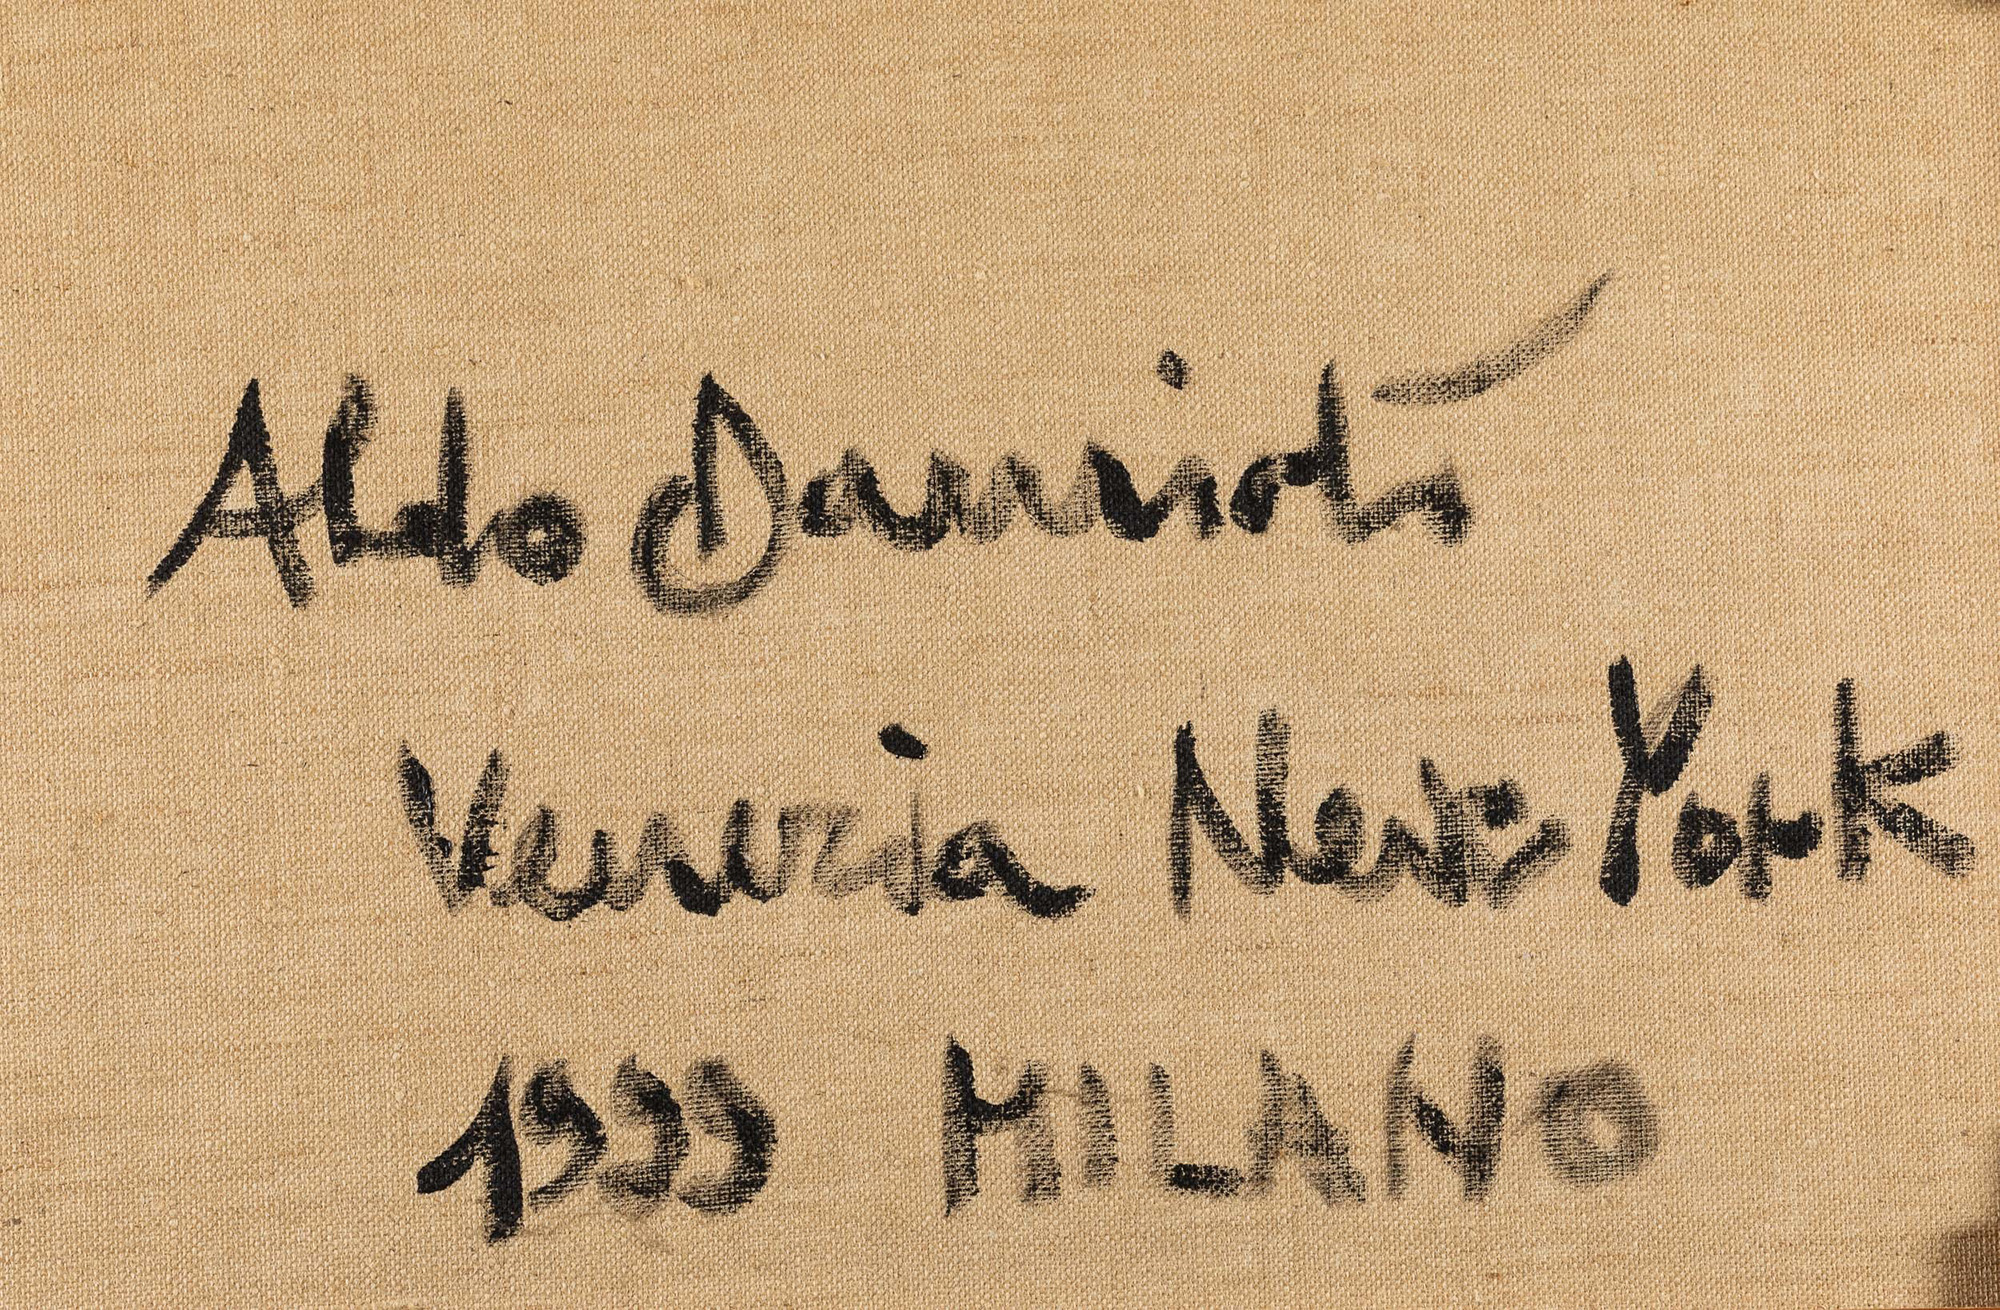 Aldo Damioti
Venezia New York
1999 MILANO